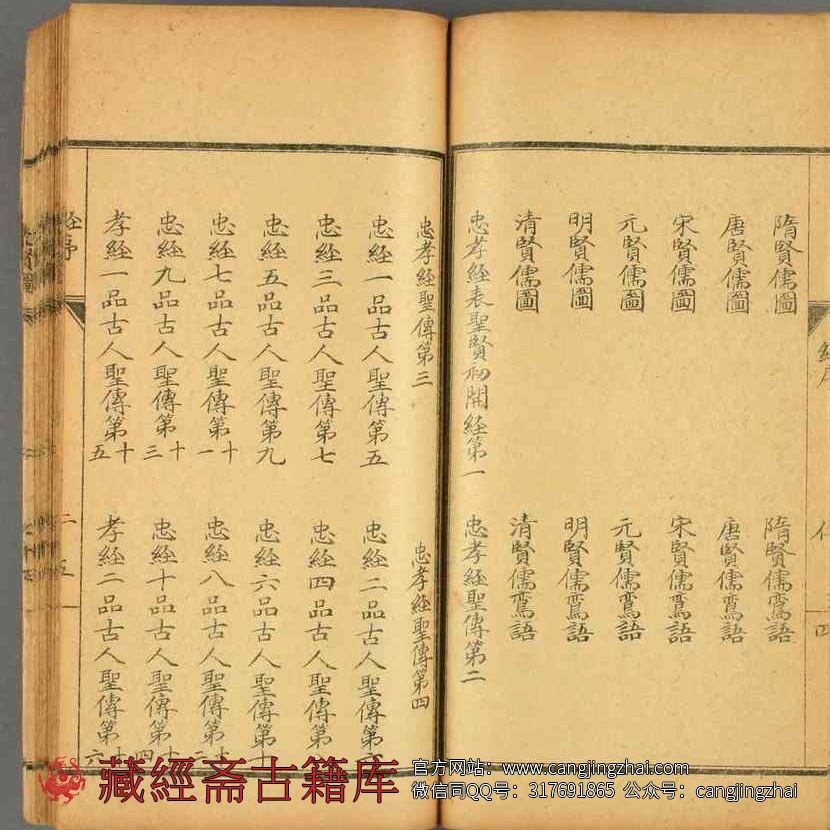 隋賢儒圖 隋賢儒鸞語
唐賢儒圖 唐賢儒鸞語
宋賢儒圖 宋賢儒鸞語
元賢儒圖 元賢儒鸞語
明賢儒圖 明賢儒鸞語
清賢儒圖 清賢儒鸞語
忠孝經表聖賢初開經第一 忠孝經聖傳第二
忠孝經聖傳第三 忠孝經聖傳第四
忠經一品古人聖傳第五 忠經二品古人聖傳第六
忠經三品古人聖傳第七 忠經四品古人聖傳第
忠經五品古人聖傳第九 忠經六品古人聖傳第十
忠經七品古人聖傳第十一 忠經八品古人聖傳第十二
忠經九品古人聖傳第十三 忠經十品古人聖傳第十四
孝經一品古人聖傳第十五 孝經二品古人聖傳第十六
經序
藏經斋古籍库
官方网站：www.cangjingzhai.com
微信同QQ号：317691865 公众号：cangjingzhai